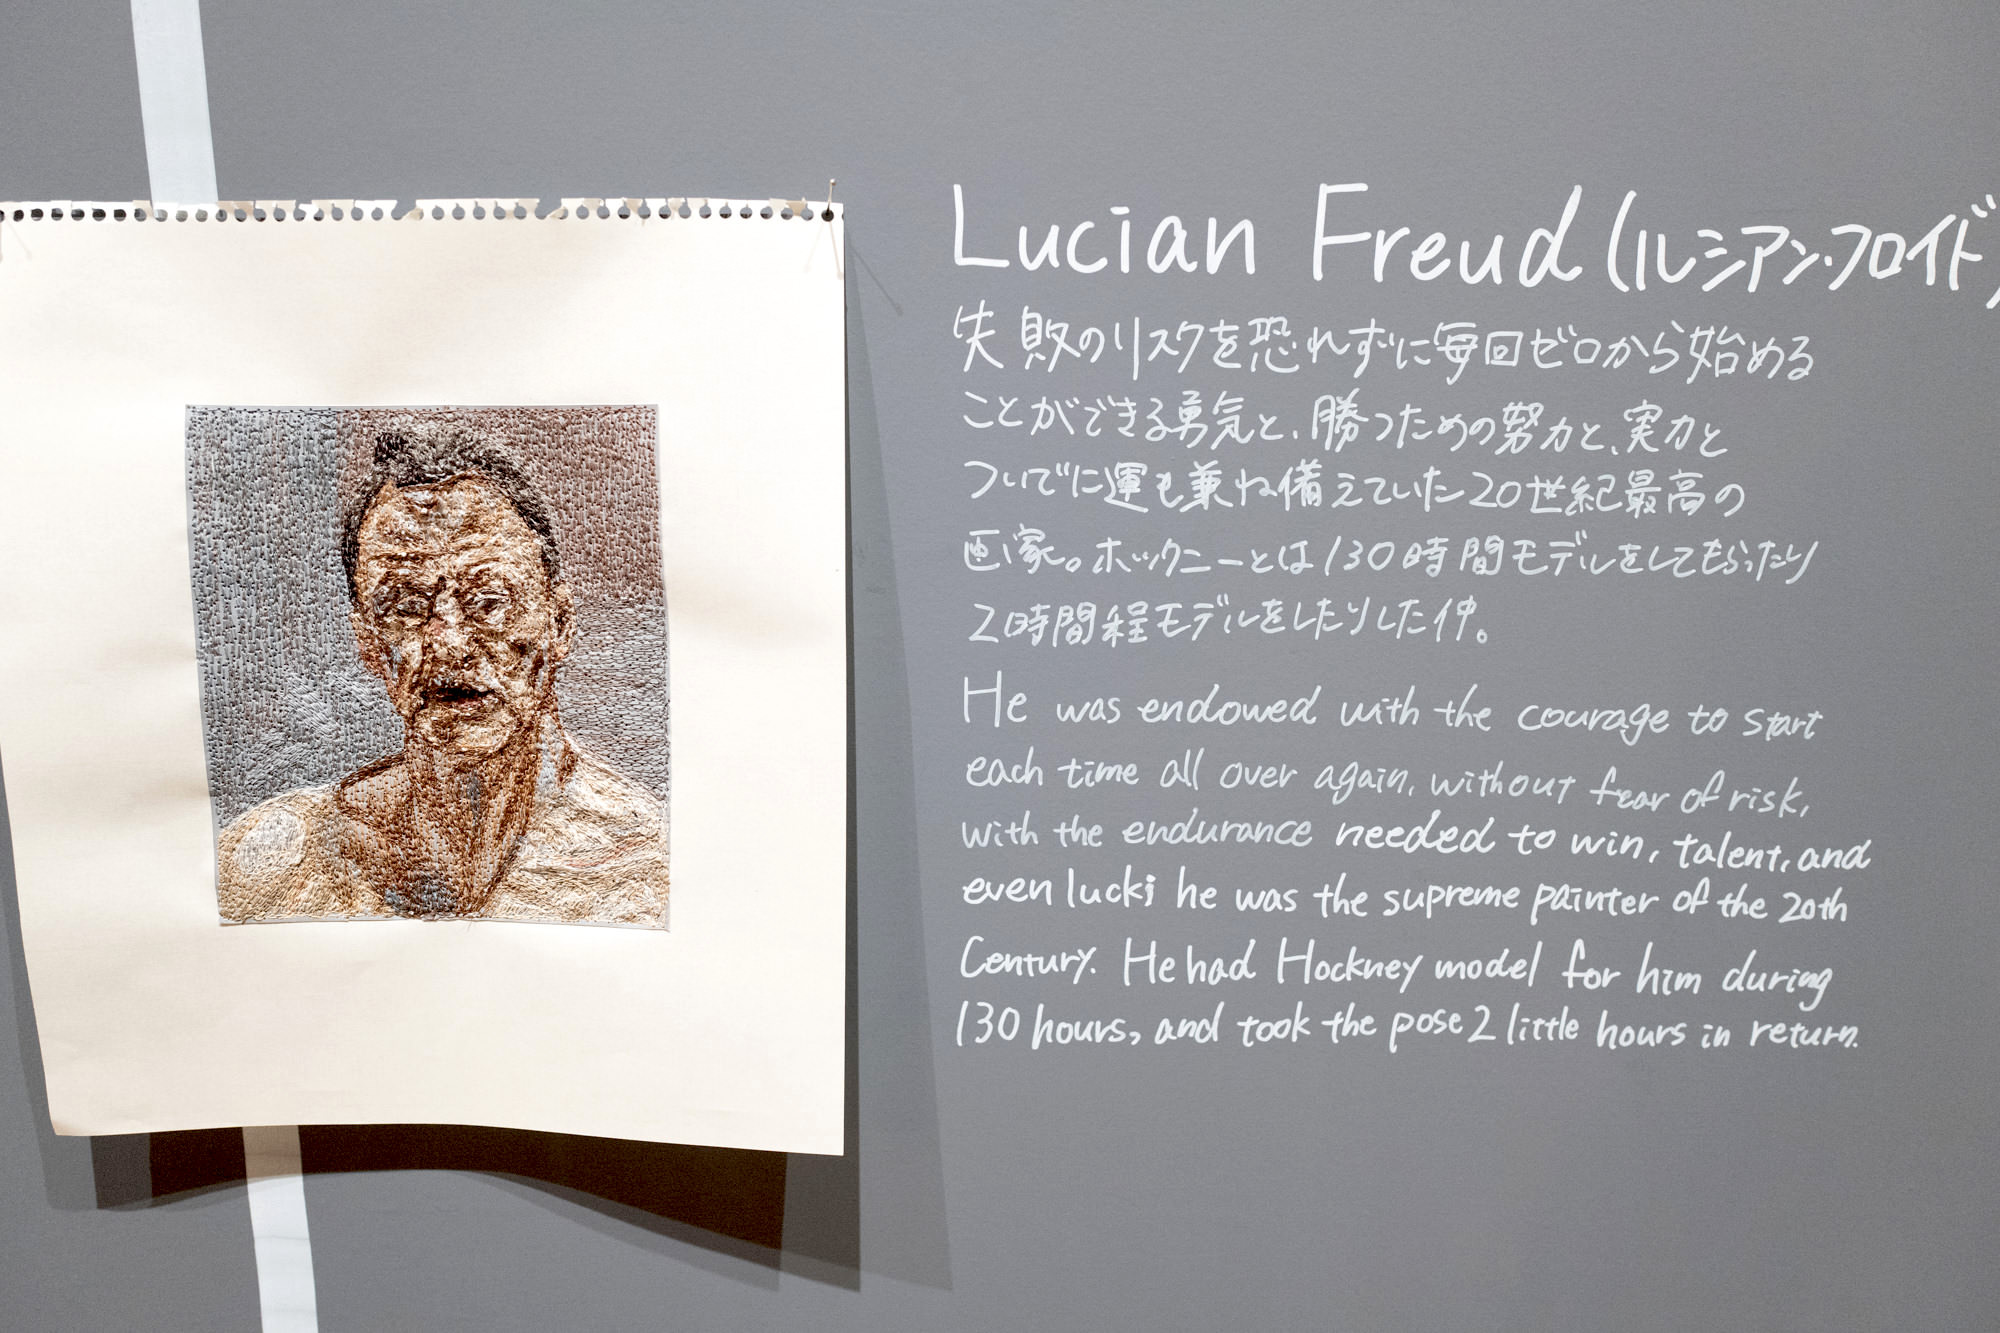 Lucian Freud (ルシアン・フロイド)
失敗のリスクを恐れずに毎回ゼロから始める
ことができる勇気と、勝つための努力と、実力と
ついでに運も兼ね備えていた20世紀最高の
画家。ホックニーとは130時間モデルをしてもらったり
2時間程モデルをしたりした仲。
He was endowed with the courage to start
each time all over again, without fear of risk,
with the endurance needed to win, talent, and
even luck; he was the supreme painter of the 20th
Century. He had Hockney model for him during
130 hours, and took the pose 2 little hours in return.